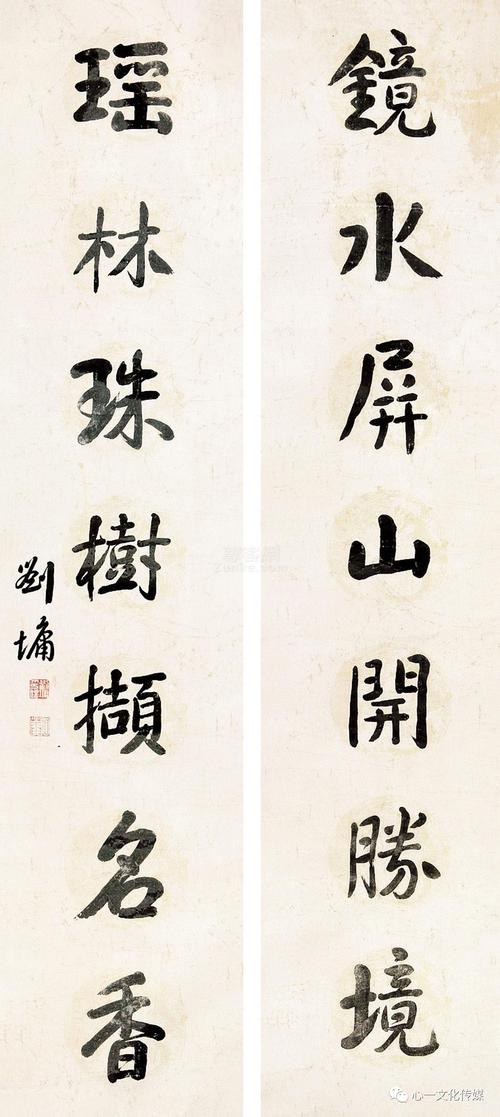 鏡水屏山開勝境
瑶林珠樹擷名香
劉墉
心一文化传媒